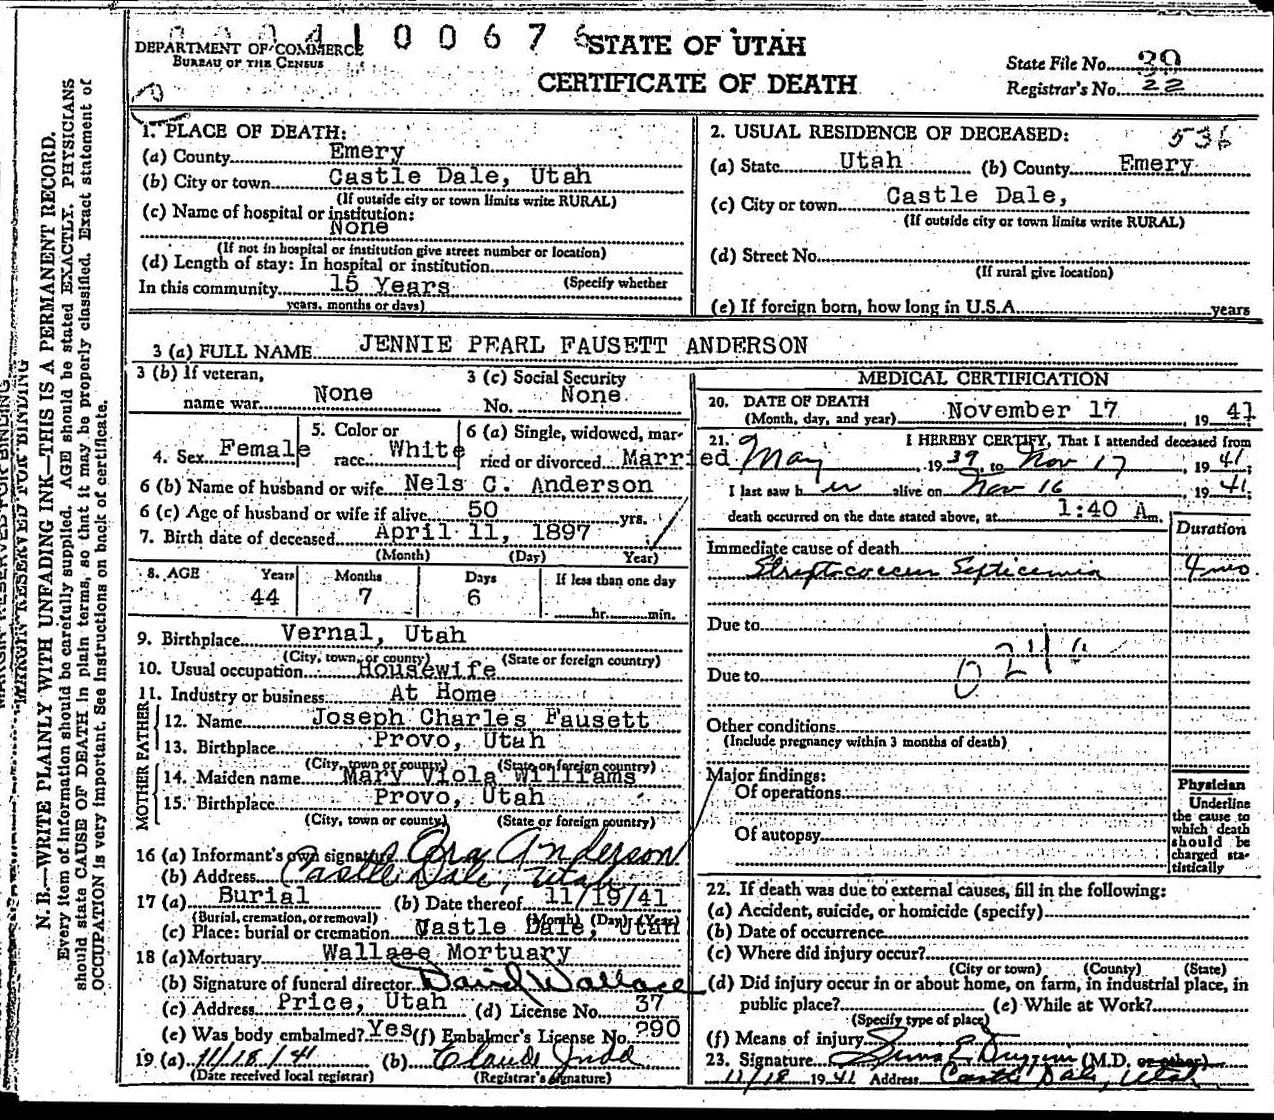 DEPARTMENT OF COMMERCE
BUREAU OF THE CENSUS
4100676
STATE OF UTAH
CERTIFICATE OF DEATH
State File No. 39
Registrar's No. 22
536
N. B.—WRITE PLAINLY WITH UNFADING INK—THIS IS A PERMANENT RECORD.
Every item of information should be carefully supplied. AGE should be stated EXACTLY. PHYSICIANS
should state CAUSE OF DEATH in plain terms, so that it may be properly classified. Exact statement of
OCCUPATION is very important. See instructions on back of certificate.
MARGIN RESERVED FOR BINDING
1. PLACE OF DEATH:
(a) County Emery
(b) City or town Castle Dale, Utah
(If outside city or town limits write RURAL)
(c) Name of hospital or institution:
None
(If not in hospital or institution give street number or location)
(d) Length of stay: In hospital or institution
In this community 15 Years (Specify whether
years, months or days)
2. USUAL RESIDENCE OF DECEASED:
(a) State Utah (b) County Emery
(c) City or town Castle Dale,
(If outside city or town limits write RURAL)
(d) Street No.
(If rural give location)
(e) If foreign born, how long in U.S.A. years
3 (a) FULL NAME JENNIE PEARL FAUSETT ANDERSON
3 (b) If veteran,
name war None
3 (c) Social Security
No. None
4. Sex Female
5. Color or
race White
6 (a) Single, widowed, mar-
ried or divorced Married
6 (b) Name of husband or wife Nels C. Anderson
6 (c) Age of husband or wife if alive 50 yrs.
7. Birth date of deceased April 11, 1897
(Month) (Day) Year)
8. AGE Years 44 Months 7 Days 6 If less than one day
hr. min.
9. Birthplace Vernal, Utah
(City, town, or county) (State or foreign country)
10. Usual occupation Housewife
11. Industry or business At Home
FATHER
12. Name Joseph Charles Fausett
13. Birthplace Provo, Utah
(City, town or county) (State or foreign country)
MOTHER
14. Maiden name Mary Viola Williams
15. Birthplace Provo, Utah
(City, town or county) (State or foreign country)
16 (a) Informant's own signature Ora Anderson
(b) Address Castle Dale, Utah
17 (a) Burial (b) Date thereof 11/19/41
(Burial, cremation, or removal) (Month) (Day) (Year)
(c) Place: burial or cremation Castle Dale, Utah
18 (a) Mortuary Wallace Mortuary
(b) Signature of funeral director David Wallace
(c) Address Price, Utah (d) License No. 37
(e) Was body embalmed? Yes (f) Embalmer's License No. 290
19 (a) 11/18/41 (b) Claude Judd
(Date received local registrar) (Registrar's signature)
MEDICAL CERTIFICATION
20. DATE OF DEATH
(Month, day, and year) November 17, 1941
21. I HEREBY CERTIFY, That I attended deceased from
May, 1939, to Nov 17, 1941
I last saw her alive on Nov 16, 1941
death occurred on the date stated above, at 1:40 A m.
Duration
Immediate cause of death
Streptococcus Septicemia 4 mo.
Due to
Due to
Other conditions
(Include pregnancy within 3 months of death)
Major findings:
Of operations
Of autopsy
Physician
Underline
the cause to
which death
should be
charged sta-
tistically
22. If death was due to external causes, fill in the following:
(a) Accident, suicide, or homicide (specify)
(b) Date of occurrence
(c) Where did injury occur?
(City or town) (County) (State)
(d) Did injury occur in or about home, on farm, in industrial place, in
public place? (e) While at Work?
(Specify type of place)
(f) Means of injury
23. Signature (M.D. or other)
11/18 1941 Address Castle Dale, Utah